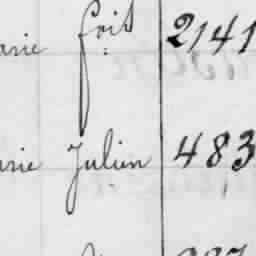 arie foit 2141
arie Julien 483